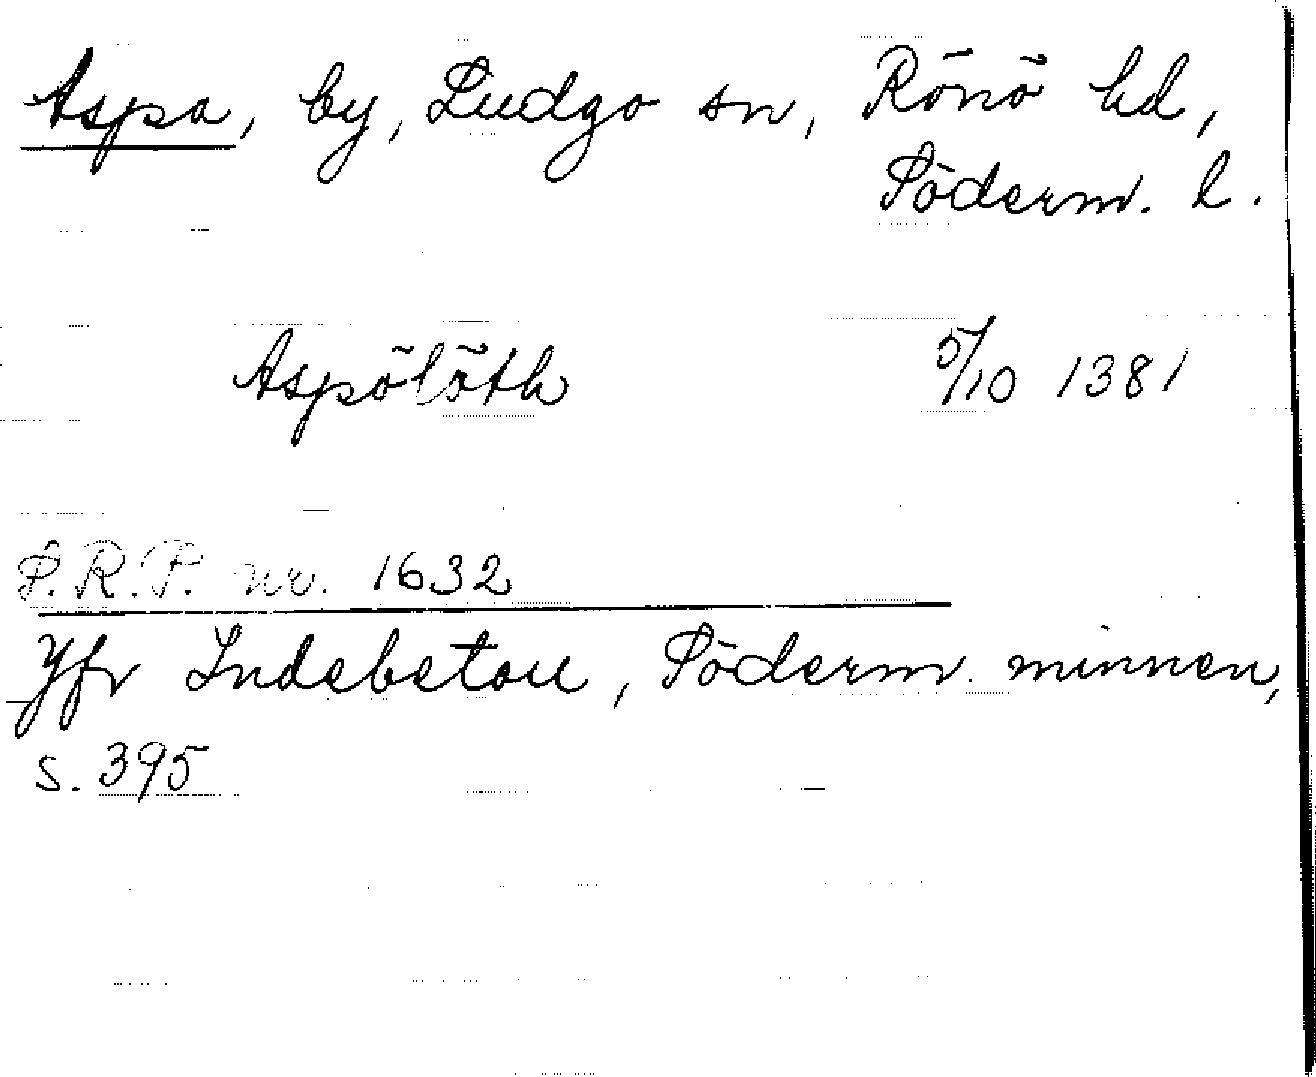 Aspa, by, Ludgo sn, Rönö hd,
Söderm. l.
Aspölöth 5/10 1381
S.R.P. nr. 1632
Jfr Indebetou, Söderm. minnen,
s. 395